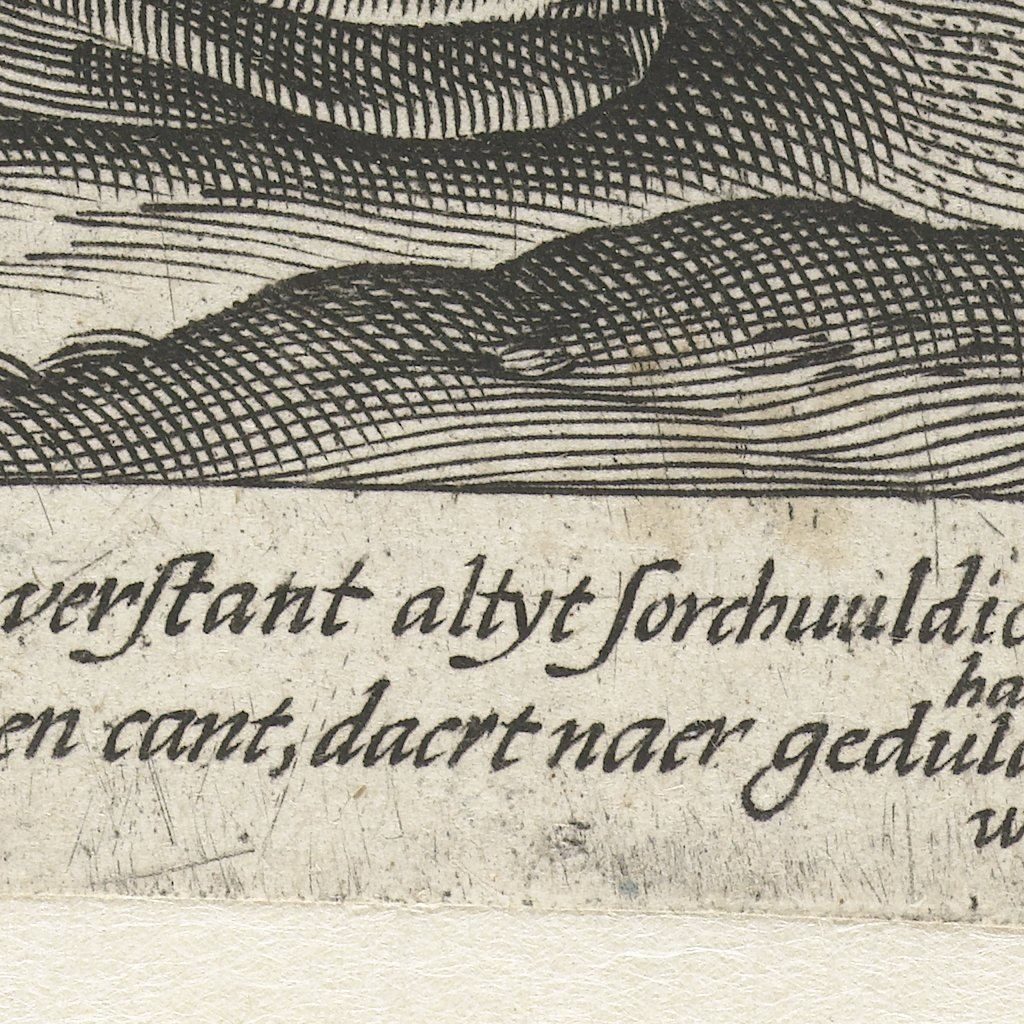 verſtant altyt ſorchuuldic
ha
en cant, daert naer geduld
w